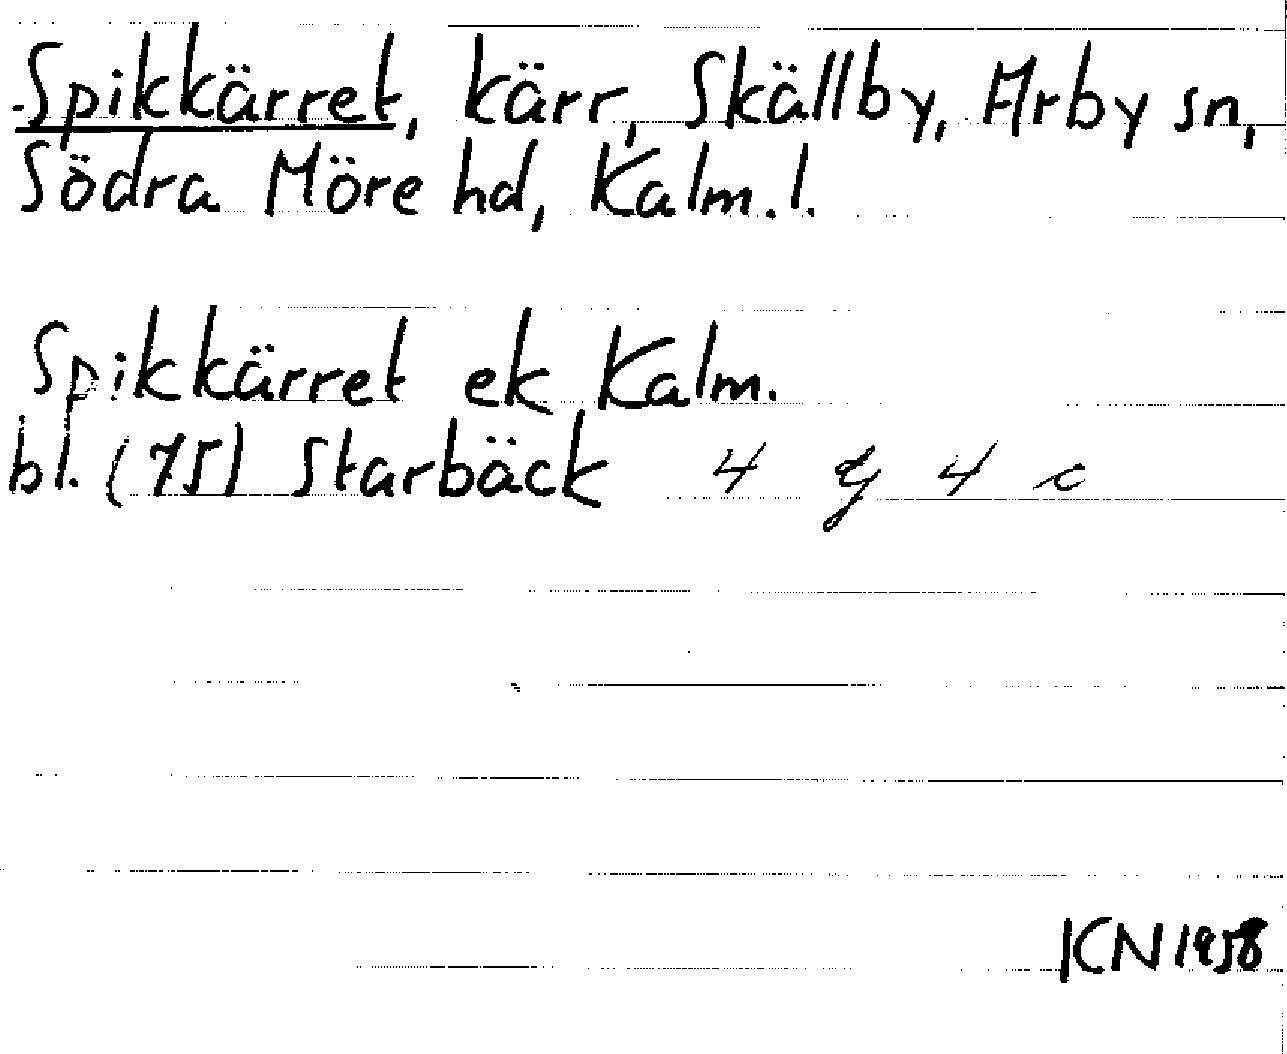 Spikkärret, kärr, Skällby, Arby sn,
Södra Möre hd, Kalm. l.
Spikkärret ek Kalm.
bl. (75) Starbäck 4 G 4 c
KN 1958